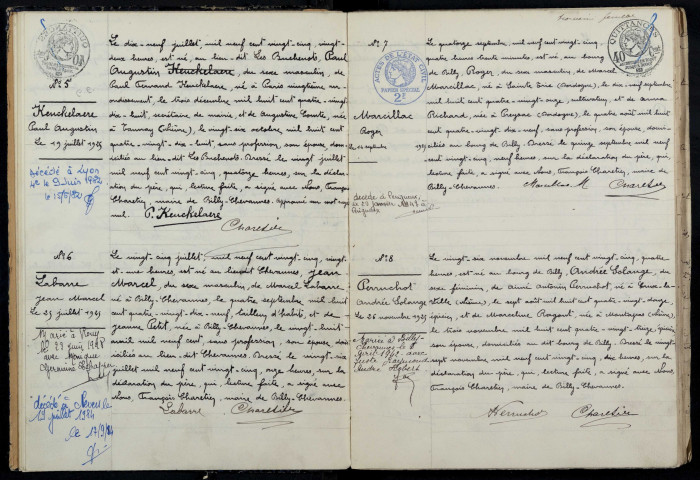 N° 5
Kenckelaere
Paul Augustin
le 19 juillet 1925
Décédé à Lyon
4e le 9 Juin 1982
le 15/6/82
Le dix-neuf juillet, mil neuf cent vingt-cinq, vingt-
deux heures, est né, au lieu-dit Les Bucherots, Paul
Augustin Kenckelaere, du sexe masculin, de
Paul Fernand Kenckelaere, né à Paris vingtième ar-
rondissement, le trois décembre mil huit cent quatre-vingt-
dix-huit, secrétaire de mairie, et de Augustine Comte, née
à Tannay (Nièvre), le vingt-six octobre mil huit cent
quatre-vingt-dix-huit, sans profession, son épouse, domi-
ciliés au lieu dit Les Bucherots. Dressé le vingt juillet
mil neuf cent vingt-cinq, quatorze heures, sur la décla-
ration du père, qui, lecture faite, a signé avec Nous, François
Charetier, maire de Billy-Chevannes. Approuvé un mot rayé
nul. P. Kenckelaere
Charetier
N° 6
Labarre
Jean Marcel
Le 25 juillet 1925
Marié à
le 23 juin 1948
avec Monique
Germaine
décédé à Nevers le
19 juillet 1984
le 17/9/84
Le vingt-cinq juillet, mil neuf cent vingt-cinq, vingt-
et-une heures, est né au lieudit Chevannes, Jean
Marcel, du sexe masculin, de Marcel Labarre,
né à Billy-Chevannes, le quatre septembre mil huit
cent quatre-vingt-dix-neuf, tailleur d'habits, et de
Jeanne Petit, née à Billy-Chevannes, le vingt-huit
avril mil neuf cent, sans profession, son épouse, domi-
ciliés au lieu dit Chevannes. Dressé le vingt-six
juillet mil neuf cent vingt-cinq, onze heures, sur la
déclaration du père, qui, lecture faite, a signé avec
Nous, François Charetier, maire de Billy-Chevannes.
Labarre Charetier
N° 7
Marcillac
Roger
Le 14 septembre 1925
décédé à Périgueux
le 23 janvier
ACTES DE L'ETAT CIVIL
PAPIER SPECIAL
2F
QUITTANCES
Le quatorze septembre, mil neuf cent vingt-cinq,
quatre heures trente minutes, est né, au bourg
de Billy, Roger, du sexe masculin, de Marcel
Marcillac, né à Sainte Orse (Dordogne), le dix septembre
mil huit cent quatre-vingt-onze, cultivateur, et de Anna
Richard, née à Peyzac (Dordogne), le quatre août mil huit
cent quatre-vingt-dix-neuf, sans profession, son épouse, domi-
ciliés au bourg de Billy. Dressé le quinze septembre, mil neuf
cent vingt-cinq, neuf heures, sur la déclaration du père, qui,
lecture faite, a signé avec Nous, François Charetier, maire de
Billy-Chevannes. Marcillac M. Charetier
N° 8
Perruchot
Andrée Solange
Le 26 novembre 1925
Mariée à Billy-
Chevannes le
août 1942 avec
Le vingt-six novembre mil neuf cent vingt-cinq, quatre
heures, est née au bourg de Billy, Andrée Solange, du
sexe féminin, de Aimé Antoine Perruchot, né à
(Nièvre), le sept août mil huit cent quatre-vingt-douze,
et de Marceline Ragout, née à Montapas (Nièvre),
le trois novembre mil huit cent quatre-vingt-treize,
son épouse, domiciliés au dit bourg de Billy. Dressé le vingt-
sept novembre mil neuf cent vingt-cinq, dix heures, sur la
déclaration du père, qui, lecture faite, a signé avec Nous,
François Charetier, maire de Billy-Chevannes.
Perruchot Charetier